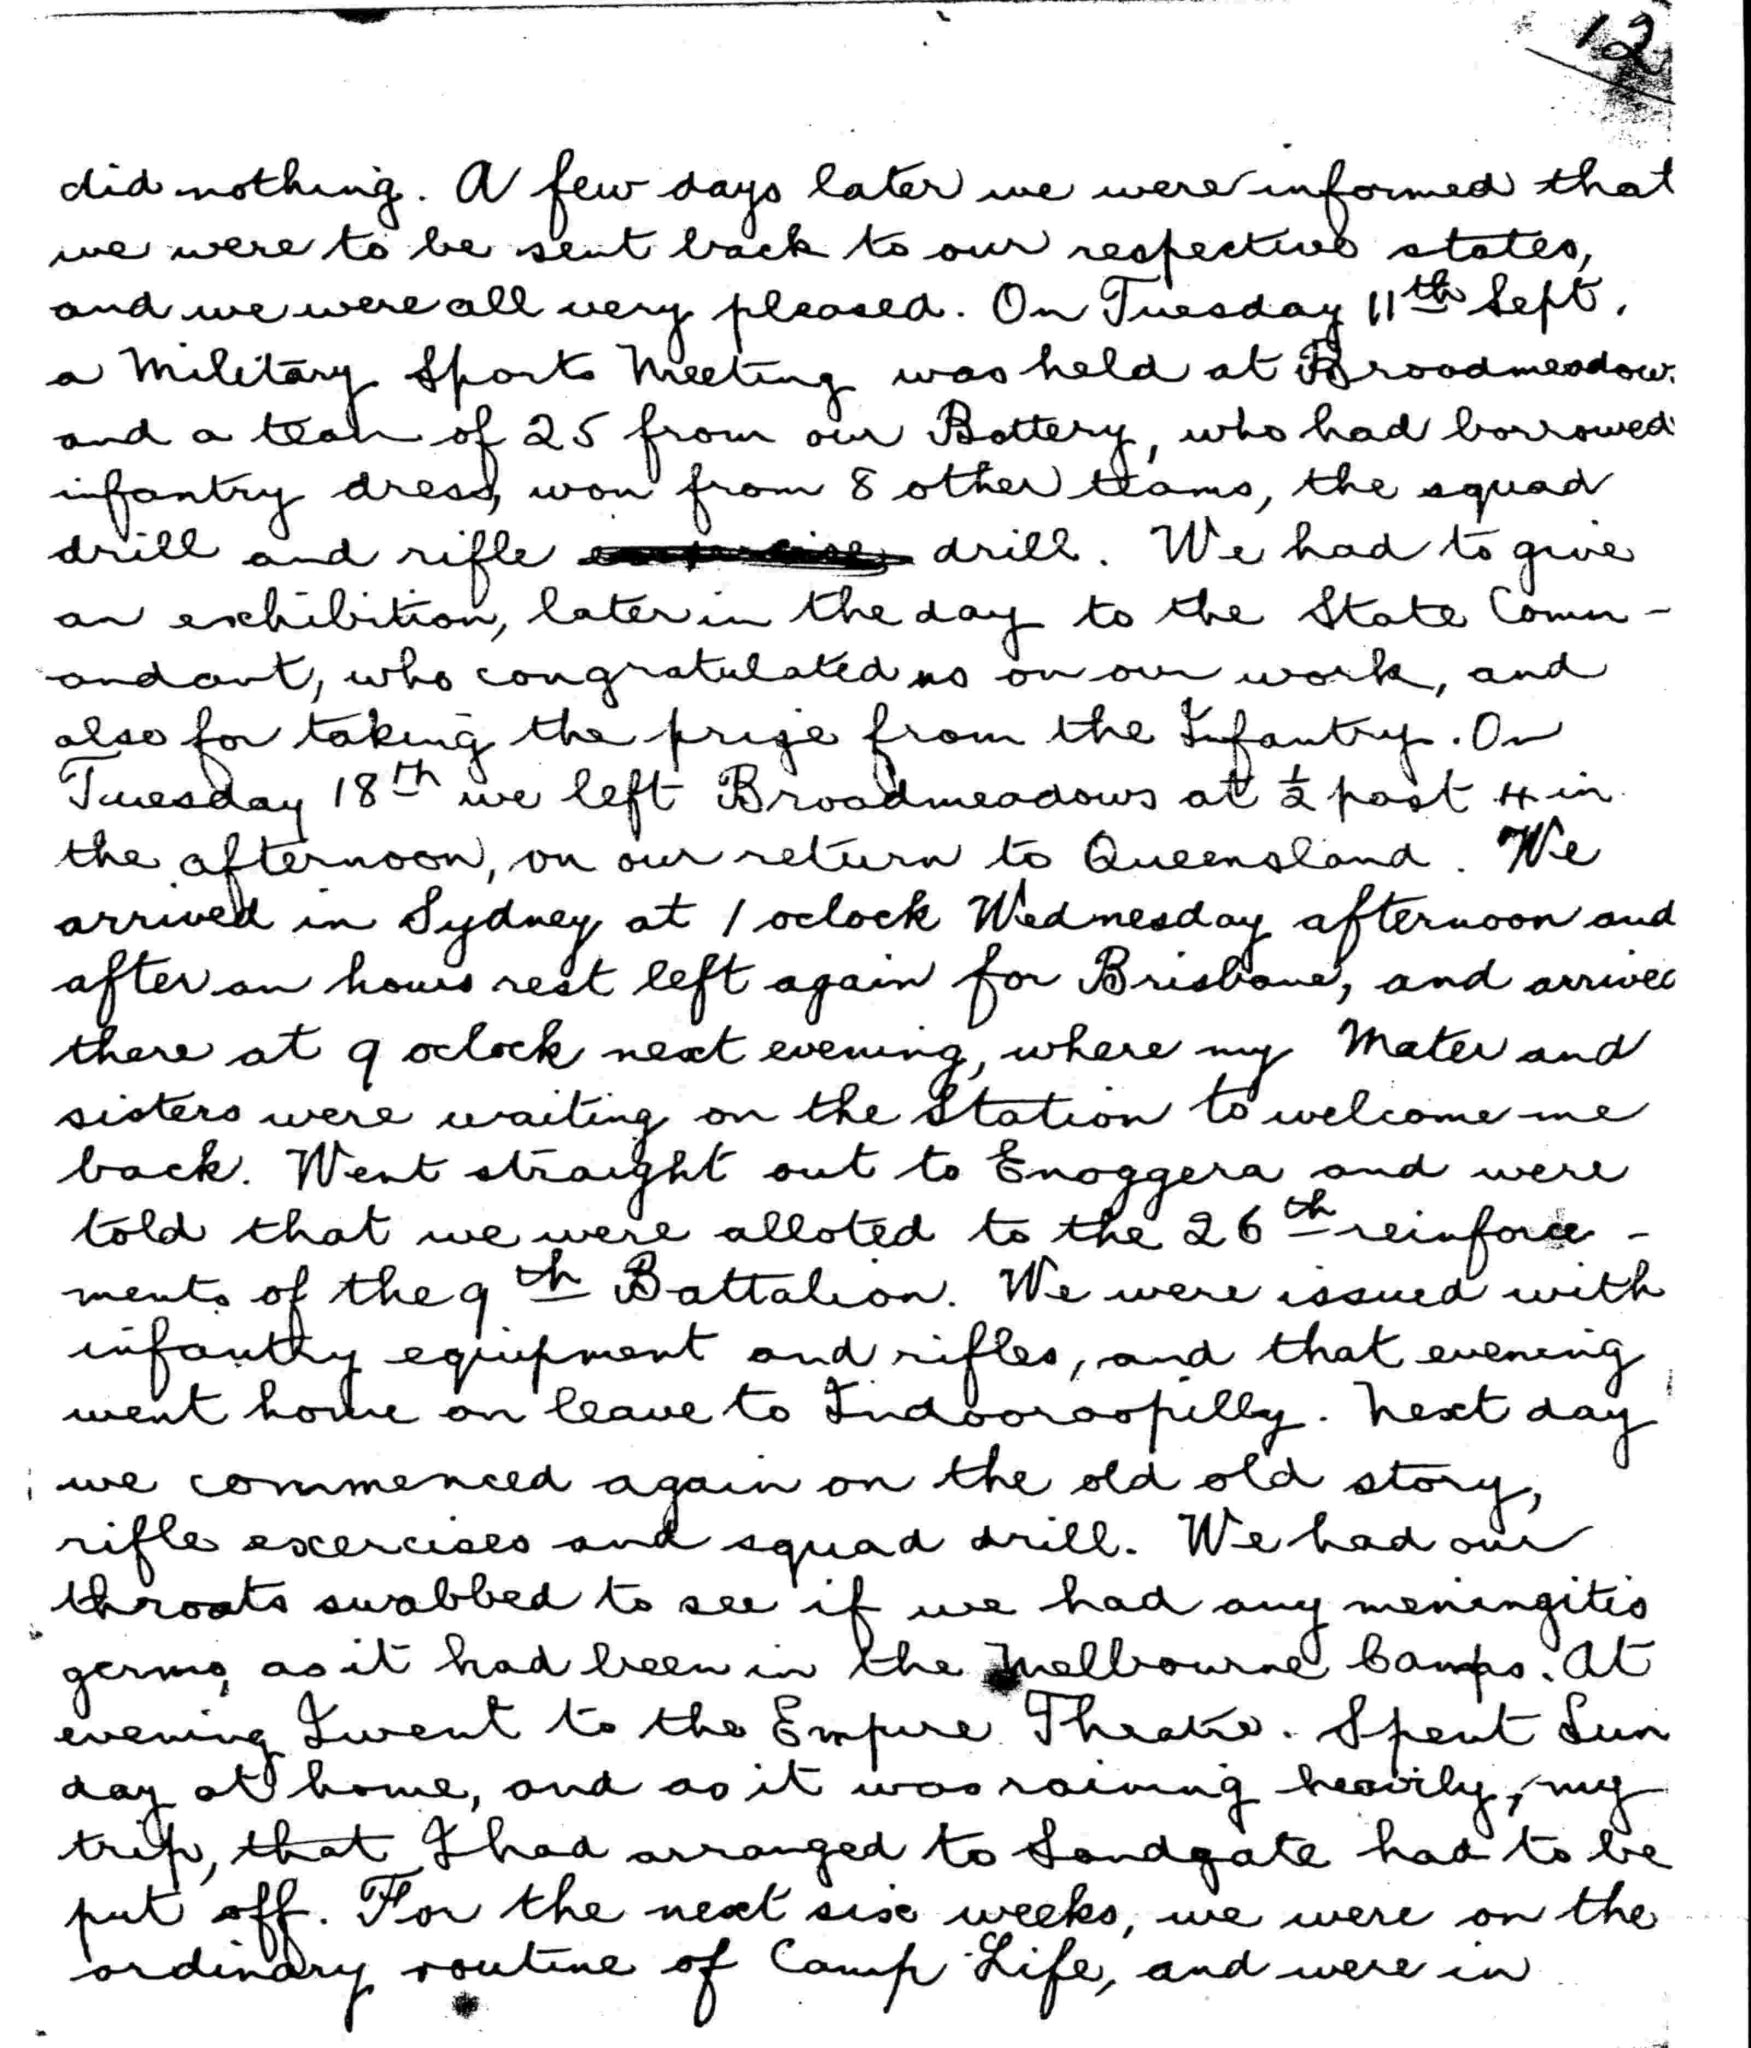 12
did nothing. A few days later we were informed that
we were to be sent back to our respective states,
and we were all very pleased. On Tuesday 11th Sept.
a Military Sports Meeting was held at Broadmeadow
and a team of 25 from our Battery, who had borrowed
infantry dress, won from 8 other teams, the squad
drill and rifle drill. We had to give
an exhibition, later in the day to the State Comm-
andant, who congratulated us on our work, and
also for taking the prize from the Infantry. On
Tuesday 18th we left Broadmeadows at ½ past 4 in
the afternoon, on our return to Queensland. We
arrived in Sydney at 1 oclock Wednesday afternoon and
after an hours rest left again for Brisbane, and arrived
there at 9 oclock next evening, where my Mater and
sisters were waiting on the Station to welcome me
back. Went straight out to Enoggera and were
told that we were alloted to the 26th reinforce-
ments of the 9th Battalion. We were issued with
infantry equipment and rifles, and that evening
went home on leave to Indooroopilly. Next day
we commenced again on the old old story,
rifle exercises and squad drill. We had our
throats swabbed to see if we had any meningitis
germs, as it had been in the Melbourne Camps. At
evening I went to the Empire Theatre. Spent Sun
day at home, and as it was raining heavily, my
trip, that I had arranged to Sandgate had to be
put off. For the next six weeks, we were on the
ordinary routine of Camp Life, and were in